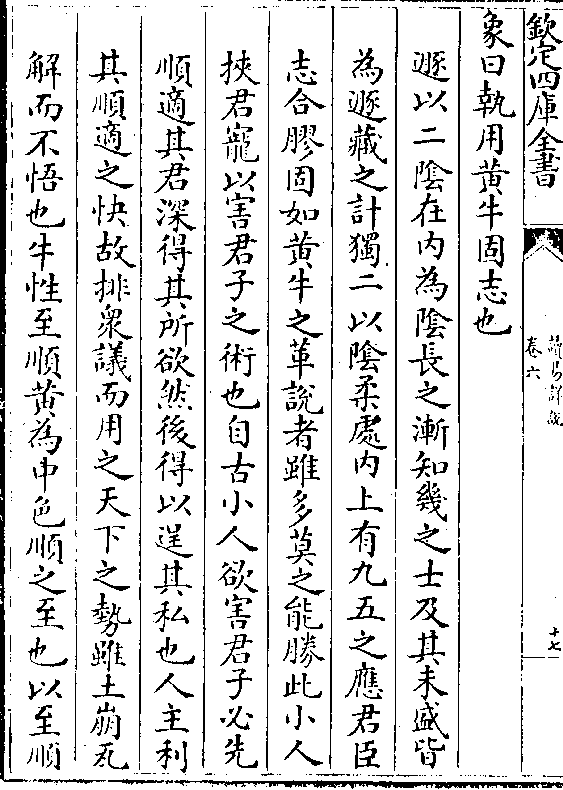 欽定四庫全書
讀易詳說
卷六
十七
象曰執用黃牛固志也
遯以二隂在内為隂長之漸知幾之士及其未盛皆
為遯藏之計獨二以隂柔處内上有九五之應君臣
志合膠固如黃牛之革說者雖多莫之能勝此小人
挾君寵以害君子之術也自古小人欲害君子必先
順適其君深得其所欲然後得以逞其私也人主利
其順適之快故排衆議而用之天下之勢雖土崩瓦
解而不悟也牛性至順黃為中色順之至也以至順